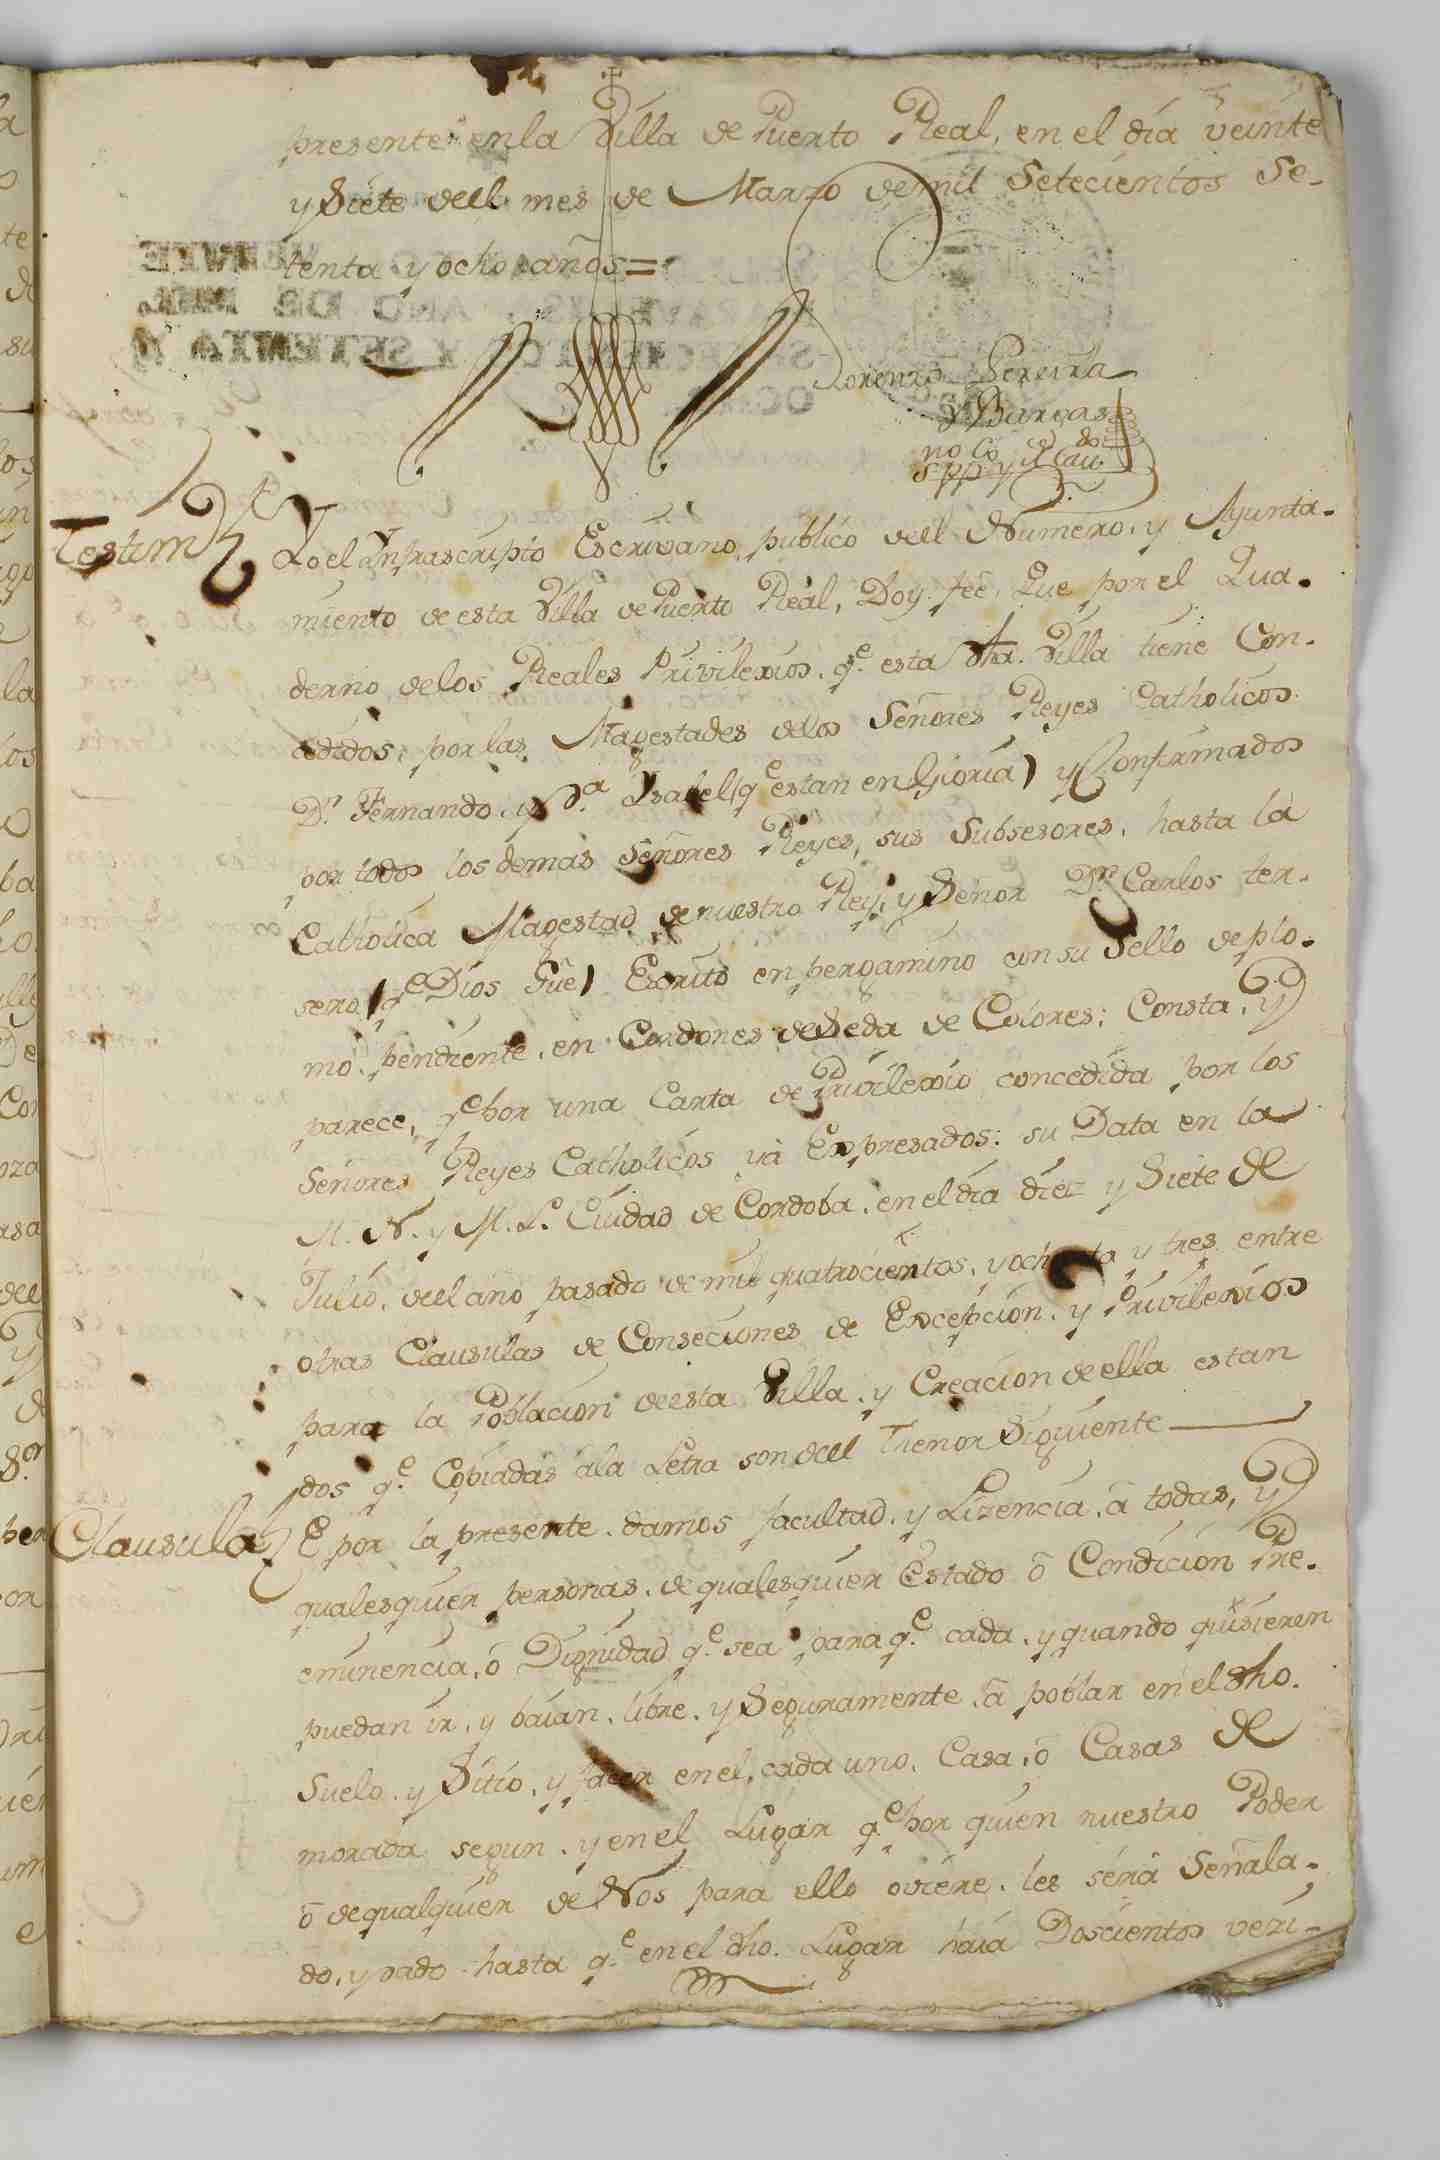 presente en la Villa de Puerto Real, en el día veinte
y Siete dell mes de Marzo de mil Setecientos Se-
tenta y ocho años =
Lorenzo Pereira
y Bargas
Testim.º
Yo el Infrascripto Escrivano publico dell Numero, y Ayunta-
miento de esta Villa de Puerto Real, Doy fée, Que por el Qua-
derno de los Reales Privilexios, q.e esta dha. Villa tiene Con-
sedidos, por las Magestades de los Señores Reyes Catholicos
D.n Fernando, y D.a Isabel (q.e estan en Gloria) y Confirmados
por todos los demas Señores Reyes, sus Subsesores, hasta la
Catholica Magestad de nuestro Rey, y Señor D.n Carlos ter-
sero (q.e Dios Gûe) Escrito en pergamino con su Sello de plo-
mo pendiente, en Cordones de Seda de Colores; Consta, y
parece, q.e por una Carta de Privilexio concedida por los
Señores Reyes Catholicos yá Expresados; su Data en la
M. N. y M. L. Ciudad de Cordoba, en el día diez y Siete de
Julio, dell año pasado de mil quatrocientos, y ochenta y tres entre
otras Clausulas de Conseciones de Excepcion, y Privilexios
para la Poblacion de esta Villa, y Creacion de ella estan
dos q.e Copiadas a la Letra son dell Thenor Siguiente
Clausula
E por la presente damos facultad, y Lizencia, â todas, y
qualesquier personas, de qualesquier Estado ô Condicion Pre-
eminencia, ô Dignidad q.e sea para q.e cada, y quando quisieren
puedan ir, y baian, libre, y Seguramente, â poblar en el dho.
Suelo, y Sitio, y facer en el, cada uno, Casa, ô Casas de
morada segun, y en el Lugar q.e por quien nuestro Poder
ô de qualquier de Nos para ello oviere, les será Señala-
do, y dado hasta q.e en el dho. Lugar haia Doscientos vezi-